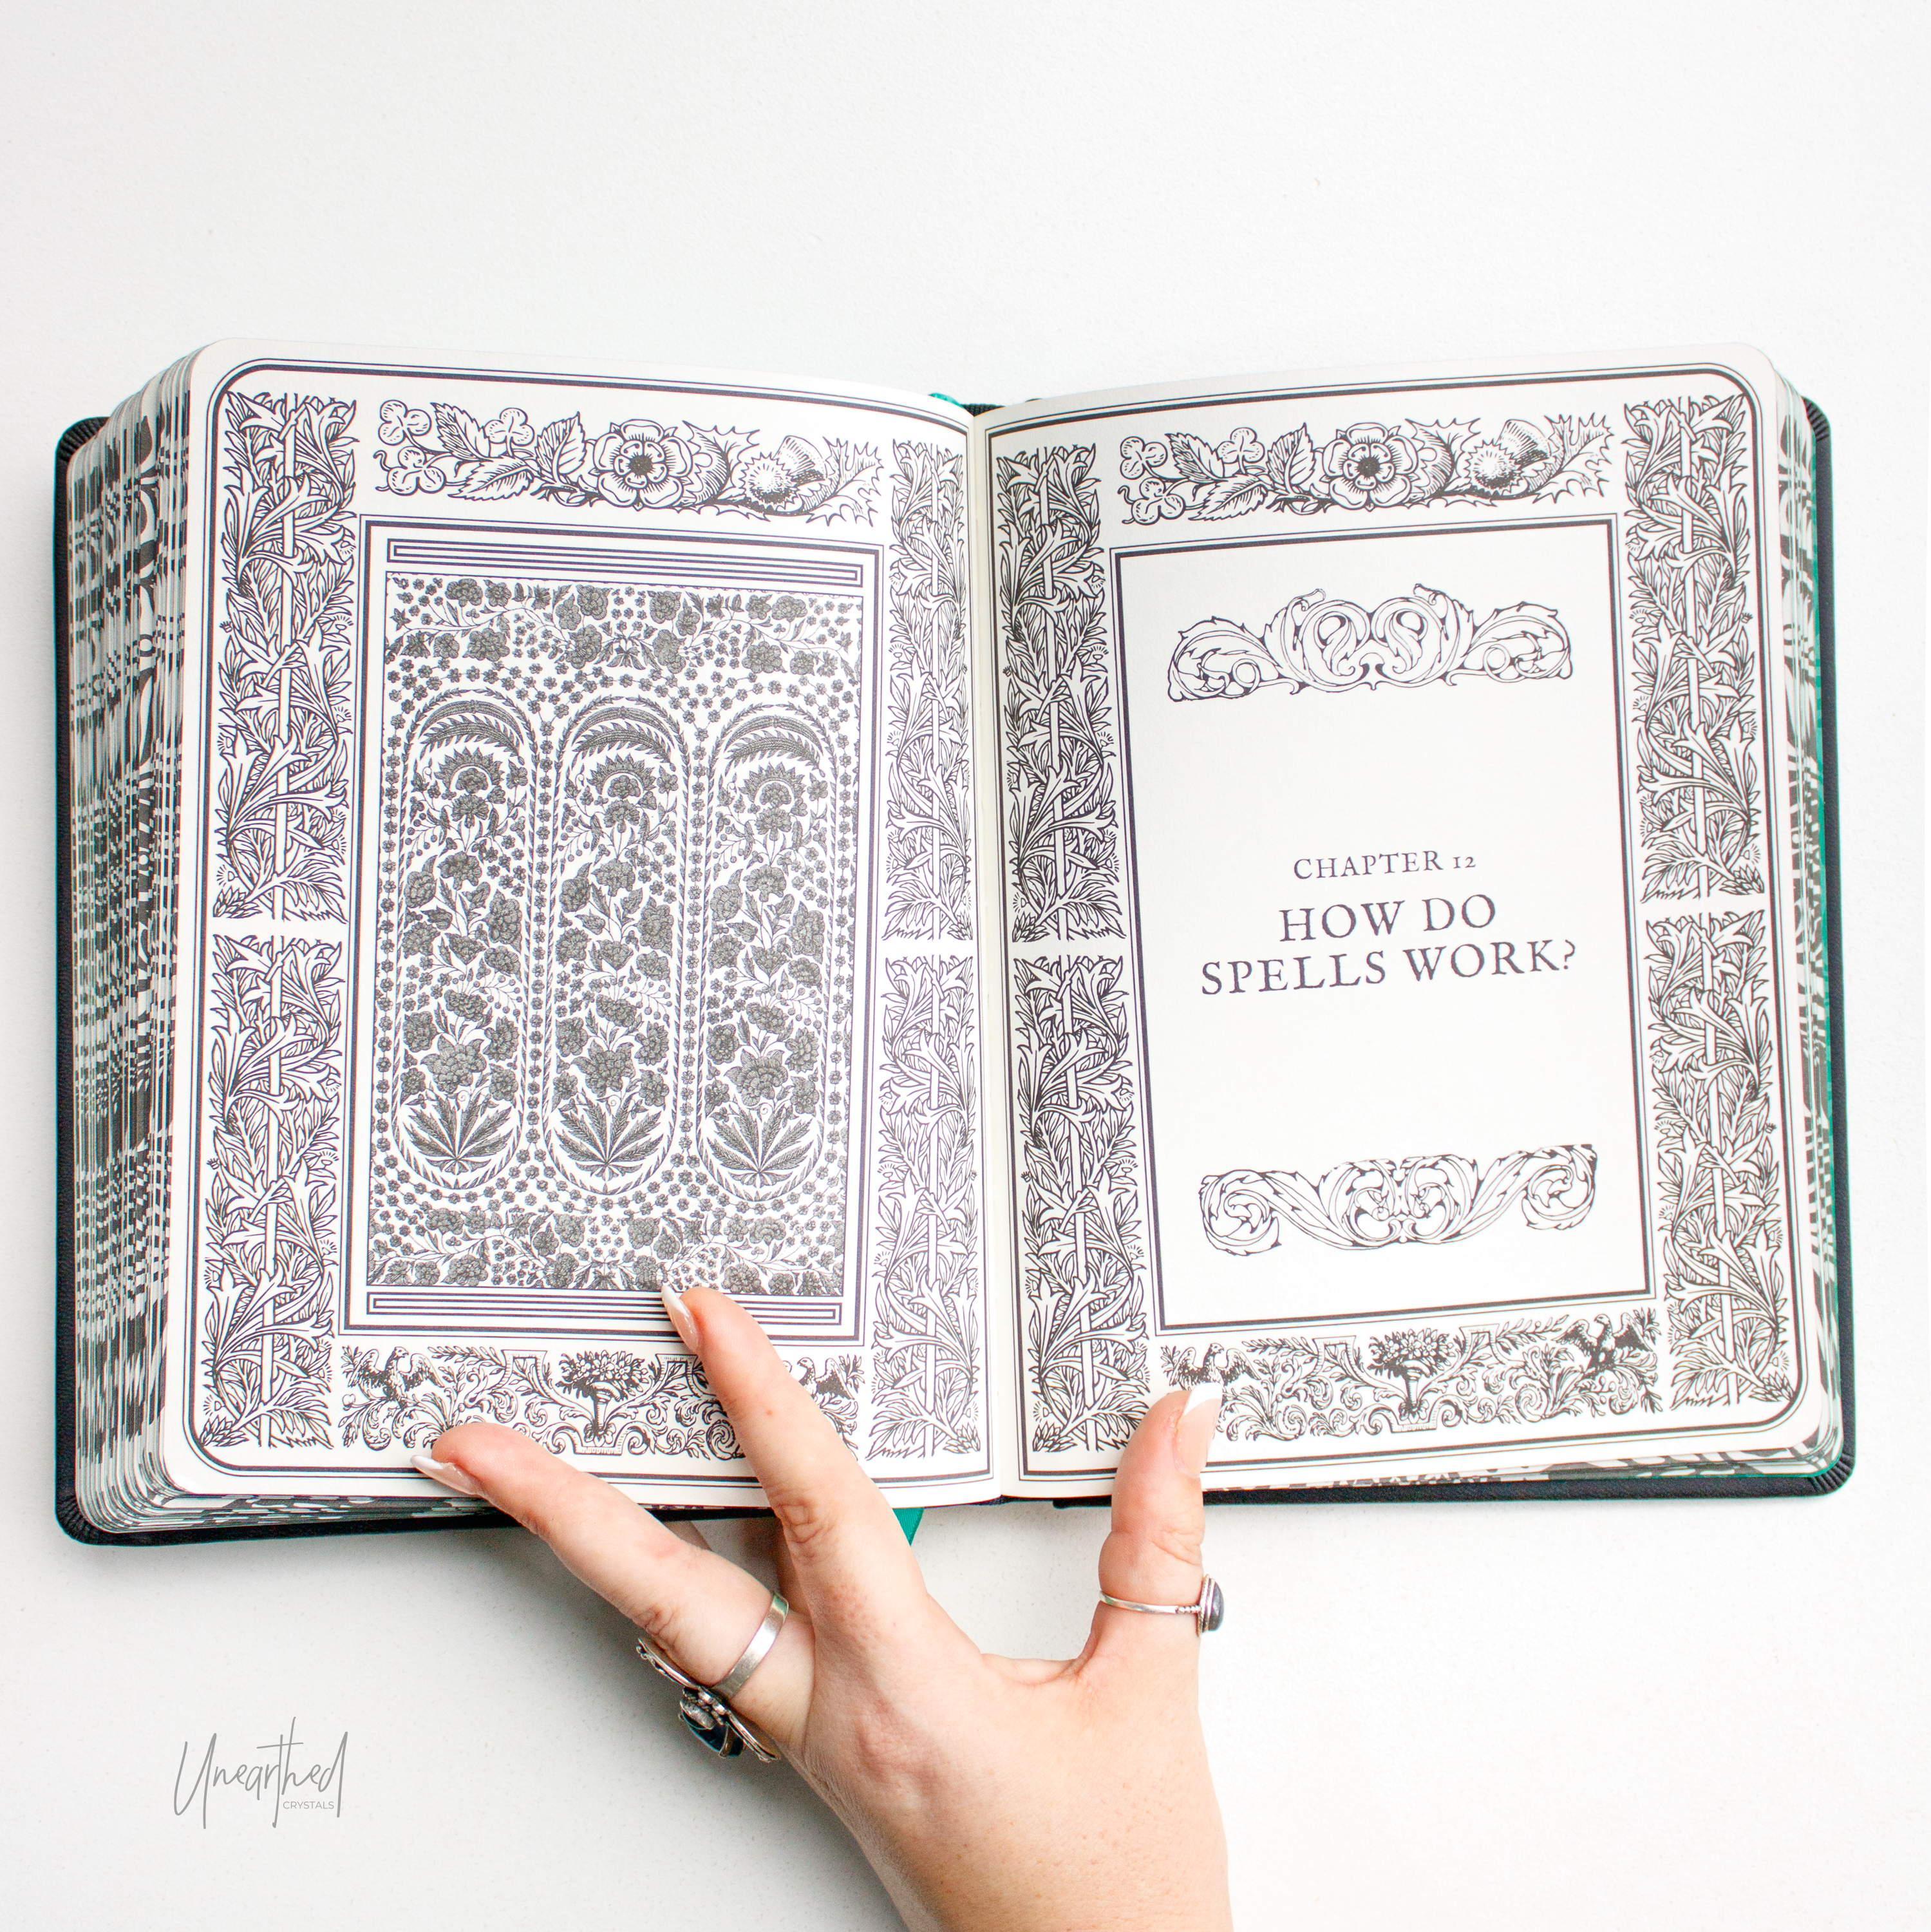 CHAPTER 12
HOW DO
SPELLS WORK?
Unearthed
CRYSTALS